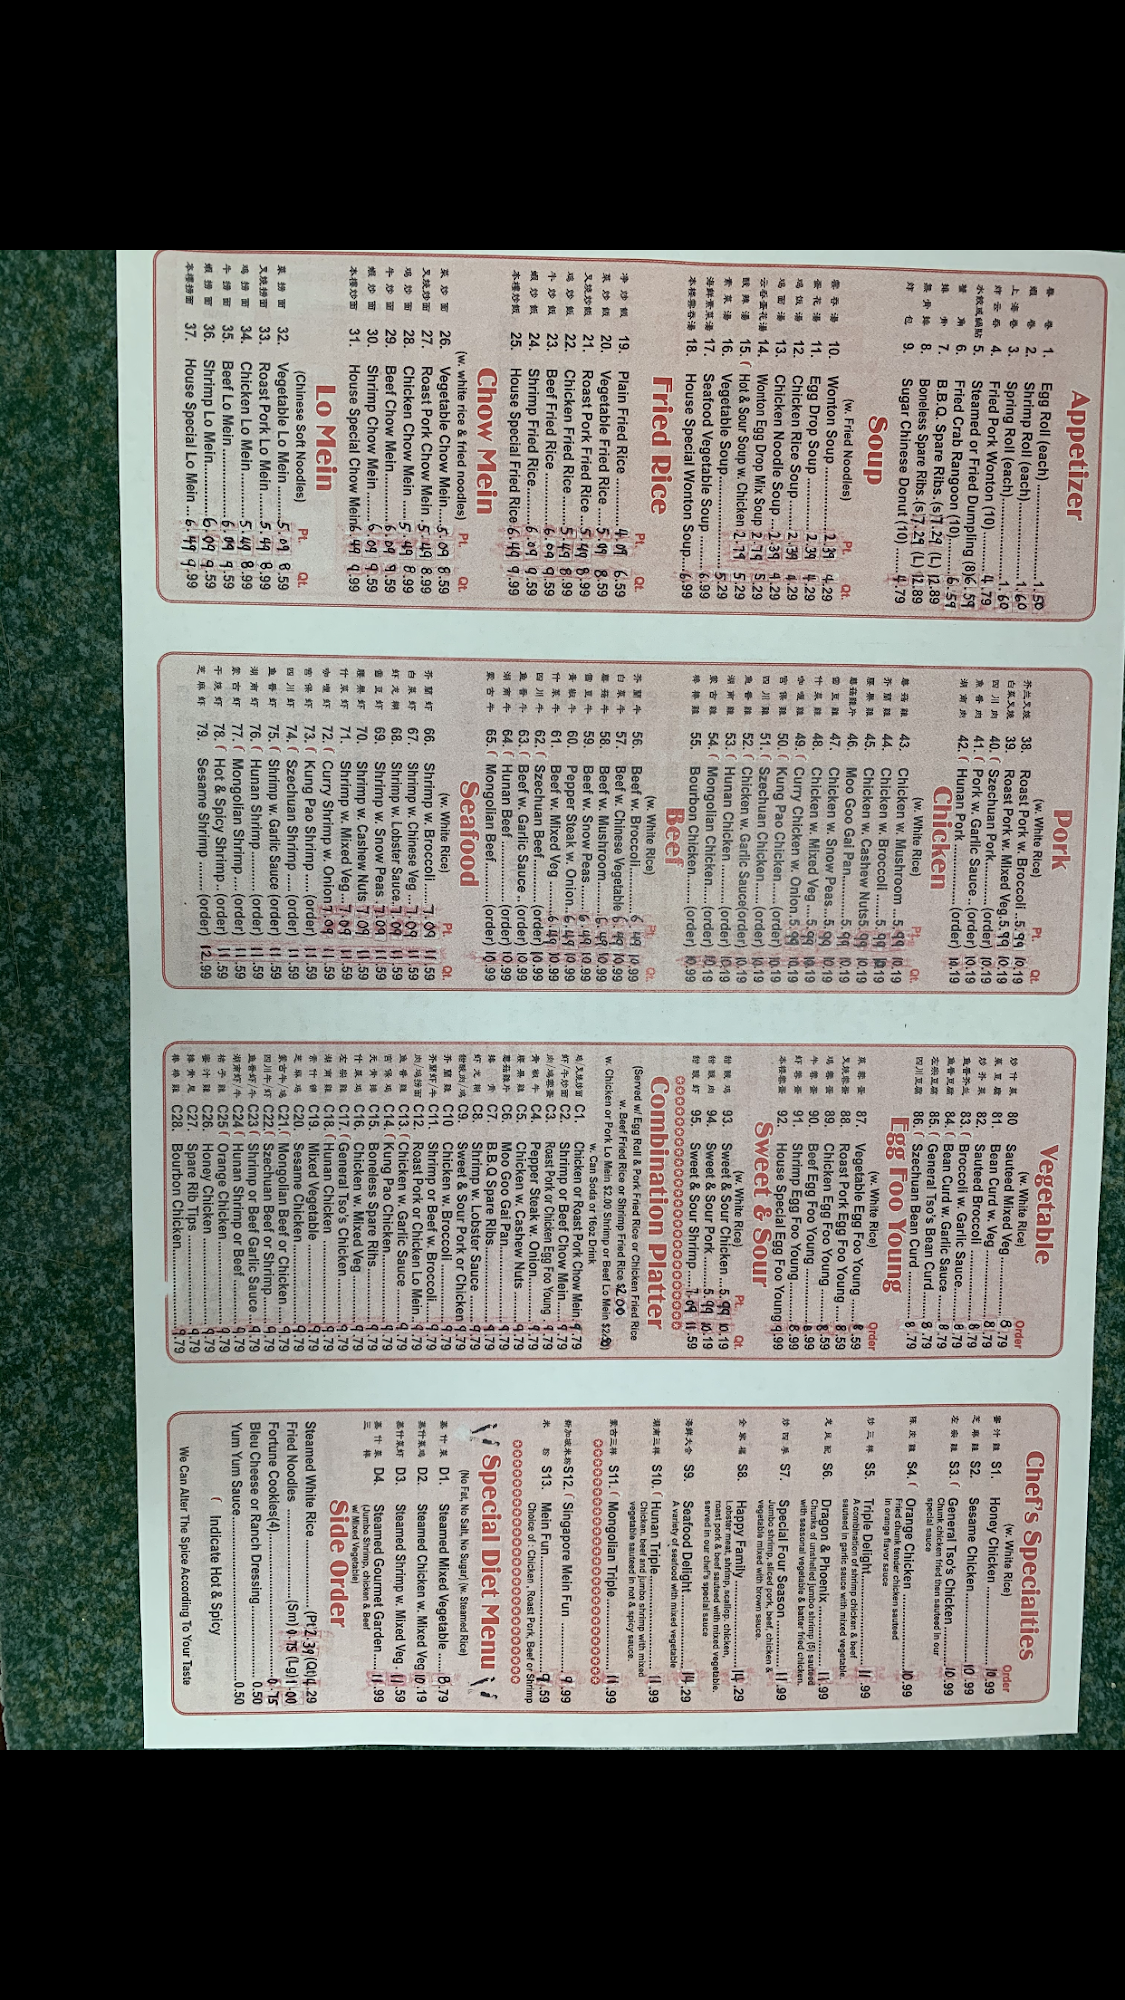 Appetizer
春 卷 1. Egg Roll (each) 1.50
蝦 卷 2. Shrimp Roll (each) 1.60
上 海 卷 3. Spring Roll (each) 1.60
炸 云 吞 4. Fried Pork Wonton (10) 4.79
水餃或鍋貼 5. Steamed or Fried Dumpling (8) 6.59
蟹 角 6. Fried Crab Rangoon (10) 6.59
排 骨 7. B.B.Q. Spare Ribs. (s) 7.29 (L) 12.89
無 骨 排 8. Boneless Spare Ribs. (s) 7.29 (L) 12.89
炸 包 9. Sugar Chinese Donut (10) 4.79
Soup
(w. Fried Noodles) Pt. Qt.
雲 吞 湯 10. Wonton Soup 2.39 4.29
蛋 花 湯 11. Egg Drop Soup 2.39 4.29
鸡 饭 湯 12. Chicken Rice Soup 2.39 4.29
鸡 面 湯 13. Chicken Noodle Soup 2.39 4.29
云吞蛋花湯 14. Wonton Egg Drop Mix Soup 2.79 5.29
酸 辣 湯 15. ( Hot & Sour Soup w. Chicken 2.79 5.29
素 菜 湯 16. Vegetable Soup 5.29
海鲜素菜湯 17. Seafood Vegetable Soup 6.99
本樓雲吞湯 18. House Special Wonton Soup 6.99
Fried Rice
Pt. Qt.
净 炒 飯 19. Plain Fried Rice 4.09 6.59
菜 炒 飯 20. Vegetable Fried Rice 5.09 8.59
叉燒炒飯 21. Roast Pork Fried Rice 5.49 8.99
鸡 炒 飯 22. Chicken Fried Rice 5.49 8.99
牛 炒 飯 23. Beef Fried Rice 6.09 9.59
蝦 炒 飯 24. Shrimp Fried Rice 6.09 9.59
本樓炒飯 25. House Special Fried Rice 6.49 9.99
Chow Mein
(w. white rice & fried noodles) Pt. Qt.
菜 炒 面 26. Vegetable Chow Mein 5.09 8.59
叉燒炒面 27. Roast Pork Chow Mein 5.49 8.99
鸡 炒 面 28. Chicken Chow Mein 5.49 8.99
牛 炒 面 29. Beef Chow Mein 6.09 9.59
蝦 炒 面 30. Shrimp Chow Mein 6.09 9.59
本樓炒面 31. House Special Chow Mein 6.49 9.99
Lo Mein
(Chinese Soft Noodles) Pt. Qt.
菜 撈 面 32. Vegetable Lo Mein 5.09 8.59
叉燒撈面 33. Roast Pork Lo Mein 5.49 8.99
鸡 撈 面 34. Chicken Lo Mein 5.49 8.99
牛 撈 面 35. Beef Lo Mein 6.09 9.59
蝦 撈 面 36. Shrimp Lo Mein 6.09 9.59
本樓撈面 37. House Special Lo Mein 6.49 9.99
Pork
(w. White Rice) Pt. Qt.
芥兰叉燒 38. Roast Pork w. Broccoli 5.99 10.19
白菜叉燒 39. Roast Pork w. Mixed Veg. 5.99 10.19
四 川 肉 40. ( Szechuan Pork (order) 10.19
魚 香 肉 41. ( Pork w. Garlic Sauce (order) 10.19
湖 南 肉 42. ( Hunan Pork (order) 10.19
Chicken
(w. White Rice) Pt. Qt.
蘑 菇 雞 43. Chicken w. Mushroom 5.99 10.19
芥 蘭 雞 44. Chicken w. Broccoli 5.99 10.19
腰 果 雞 45. Chicken w. Cashew Nuts 5.99 10.19
蘑菇雞片 46. Moo Goo Gai Pan 5.99 10.19
雪 豆 雞 47. Chicken w. Snow Peas 5.99 10.19
什 菜 雞 48. Chicken w. Mixed Veg 5.99 10.19
咖 喱 雞 49. ( Curry Chicken w. Onion 5.99 10.19
宮 保 雞 50. ( Kung Pao Chicken (order) 10.19
四 川 雞 51. ( Szechuan Chicken (order) 10.19
魚 香 雞 52. ( Chicken w. Garlic Sauce (order) 10.19
湖 南 雞 53. ( Hunan Chicken (order) 10.19
蒙 古 雞 54. ( Mongolian Chicken (order) 10.19
棒 棒 雞 55. Bourbon Chicken (order) 10.99
Beef
(w. White Rice) Pt. Qt.
芥 蘭 牛 56. Beef w. Broccoli 6.49 10.99
白 菜 牛 57. Beef w. Chinese Vegetable 6.49 10.99
蘑 菇 牛 58. Beef w. Mushroom 6.49 10.99
雪 豆 牛 59. Beef w. Snow Peas 6.49 10.99
青 椒 牛 60. Pepper Steak w. Onion 6.49 10.99
什 菜 牛 61. Beef w. Mixed Veg 6.49 10.99
四 川 牛 62. ( Szechuan Beef (order) 10.99
魚 香 牛 63. ( Beef w. Garlic Sauce (order) 10.99
湖 南 牛 64. ( Hunan Beef (order) 10.99
蒙 古 牛 65. ( Mongolian Beef (order) 10.99
Seafood
(w. White Rice) Pt. Qt.
芥 蘭 虾 66. Shrimp w. Broccoli 7.09 11.59
白 菜 虾 67. Shrimp w. Chinese Veg 7.09 11.59
虾 龙 糊 68. Shrimp w. Lobster Sauce 7.09 11.59
雪 豆 虾 69. Shrimp w. Snow Peas 7.09 11.59
腰 果 虾 70. Shrimp w. Cashew Nuts 7.09 11.59
什 菜 虾 71. Shrimp w. Mixed Veg 7.09 11.59
咖 喱 虾 72. ( Curry Shrimp w. Onion 7.09 11.59
宮 保 虾 73. ( Kung Pao Shrimp (order) 11.59
四 川 虾 74. ( Szechuan Shrimp (order) 11.59
魚 香 虾 75. ( Shrimp w. Garlic Sauce (order) 11.59
湖 南 虾 76. ( Hunan Shrimp (order) 11.59
蒙 古 虾 77. ( Mongolian Shrimp (order) 11.59
干 燒 虾 78. ( Hot & Spicy Shrimp (order) 11.59
芝 麻 虾 79. Sesame Shrimp (order) 12.99
Vegetable
(w. White Rice) Order
炒 什 菜 80 Sauteed Mixed Veg 8.79
菜 豆 腐 81. Bean Curd w. Veg 8.79
炒 芥 菜 82. Sauteed Broccoli 8.79
魚香芥兰 83. ( Broccoli w. Garlic Sauce 8.79
魚香豆腐 84. ( Bean Curd w. Garlic Sauce 8.79
左宗豆腐 85. ( General Tso's Bean Curd 8.79
四川豆腐 86. ( Szechuan Bean Curd 8.79
Egg Foo Young
(w. White Rice) Order
菜 蓉 蛋 87. Vegetable Egg Foo Young 8.59
叉燒蓉蛋 88. Roast Pork Egg Foo Young 8.59
鸡 蓉 蛋 89. Chicken Egg Foo Young 8.59
牛 蓉 蛋 90. Beef Egg Foo Young 8.99
虾 蓉 蛋 91. Shrimp Egg Foo Young 8.99
本樓蓉蛋 92. House Special Egg Foo Young 9.99
Sweet & Sour
(w. White Rice) Pt. Qt.
甜 酸 鸡 93. Sweet & Sour Chicken 5.99 10.19
甜 酸 肉 94. Sweet & Sour Pork 5.99 10.19
甜 酸 虾 95. Sweet & Sour Shrimp 7.09 11.59
Combination Platter
(Served w/ Egg Roll & Pork Fried Rice or Chicken Fried Rice
w. Beef Fried Rice or Shrimp Fried Rice $2.00
w. Chicken or Pork Lo Mein $2.00 Shrimp or Beef Lo Mein
w. Can Soda or 16oz Drink
鸡/叉燒炒面 C1. Chicken or Roast Pork Chow Mein 9.79
虾/牛炒面 C2. Shrimp or Beef Chow Mein 9.79
肉/鸡蓉蛋 C3. Roast Pork or Chicken Egg Foo Young 9.79
青 椒 牛 C4. Pepper Steak w. Onion 9.79
腰 果 雞 C5. Chicken w. Cashew Nuts 9.79
蘑菇雞片 C6. Moo Goo Gai Pan 9.79
排 骨 C7. B.B.Q Spare Ribs 9.79
虾 龙 糊 C8. Shrimp w. Lobster Sauce 9.79
甜酸肉/鸡 C9. Sweet & Sour Pork or Chicken 9.79
芥 蘭 雞 C10 Chicken w. Broccoli 9.79
芥蘭虾/牛 C11. Shrimp or Beef w. Broccoli 9.79
肉/鸡撈面 C12. Roast Pork or Chicken Lo Mein 9.79
魚 香 雞 C13. ( Chicken w. Garlic Sauce 9.79
宮 保 鸡 C14. ( Kung Pao Chicken 9.79
无 骨 排 C15. Boneless Spare Ribs 9.79
什 菜 鸡 C16. Chicken w. Mixed Veg 9.79
左 宗 雞 C17. ( General Tso's Chicken 9.79
湖 南 雞 C18. ( Hunan Chicken 9.79
素 什 錦 C19. Mixed Vegetable 9.79
芝 麻 鸡 C20. Sesame Chicken 9.79
蒙古牛/鸡 C21. ( Mongolian Beef or Chicken 9.79
四川牛/虾 C22. ( Szechuan Beef or Shrimp 9.79
魚香虾/牛 C23. ( Shrimp or Beef Garlic Sauce 9.79
湖南虾/牛 C24. ( Hunan Shrimp or Beef 9.79
桔 子 雞 C25. ( Orange Chicken 9.79
蜜 汁 雞 C26. Honey Chicken 9.79
排 骨 尾 C27. Spare Rib Tips 9.79
棒 棒 雞 C28. Bourbon Chicken 9.79
Chef's Specialties
(w. White Rice) Order
蜜 汁 雞 S1. Honey Chicken 10.99
芝 麻 雞 S2. Sesame Chicken 10.99
左 宗 雞 S3. ( General Tso's Chicken 10.99
Chunk chicken fried then sauteed in our
special sauce
陈 皮 雞 S4. ( Orange Chicken 10.99
Fried chunk tender chicken sauteed
in orange flavor sauce
炒 三 样 S5. Triple Delight 11.99
A combination of shrimp chicken & beef
sauteed in garlic sauce with mixed vegetable.
龙 凤 配 S6. Dragon & Phoenix 11.99
Chunks of unshelled jumbo shrimp (5) sauteed
with seasonal vegetable & batter fried chicken.
炒 四 季 S7. Special Four Season 11.99
Jumbo shrimp, sliced pork, beef, chicken &
vegetable mixed with brown sauce.
全 家 福 S8. Happy Family 14.29
Lobster meat, shrimp, scallop, chicken,
roast pork & beef sauteed with mixed vegetable,
served in our chef's special sauce
海鲜大会 S9. Seafood Delight 14.29
A variety of seafood with mixed vegetable
湖南三样 S10. ( Hunan Triple 11.99
Chicken, beef and jumbo shrimp with mixed
vegetable sauteed in hot & spicy sauce.
蒙古三样 S11. ( Mongolian Triple 11.99
新加坡米粉 S12. ( Singapore Mein Fun 9.99
米 粉 S13. Mein Fun 9.59
Choice of : Chicken, Roast Pork, Beef or Shrimp
Special Diet Menu
(No Fat, No Salt, No Sugar) (w. Steamed Rice)
蒸 什 菜 D1. Steamed Mixed Vegetable 8.79
蒸什菜鸡 D2. Steamed Chicken w. Mixed Veg 10.19
蒸什菜虾 D3. Steamed Shrimp w. Mixed Veg 11.59
蒸 什 菜 三 样 D4. Steamed Gourmet Garden 11.99
(Jumbo Shrimp, chicken & Beef
w/ Mixed Vegetable)
Side Order
Steamed White Rice (Pt) 2.39 (Qt) 4.29
Fried Noodles (Sm) 0.75 (Lg) 1.00
Fortune Cookies(4) 0.75
Bleu Cheese or Ranch Dressing 0.50
Yum Yum Sauce 0.50
( Indicate Hot & Spicy
We Can Alter The Spice According To Your Taste